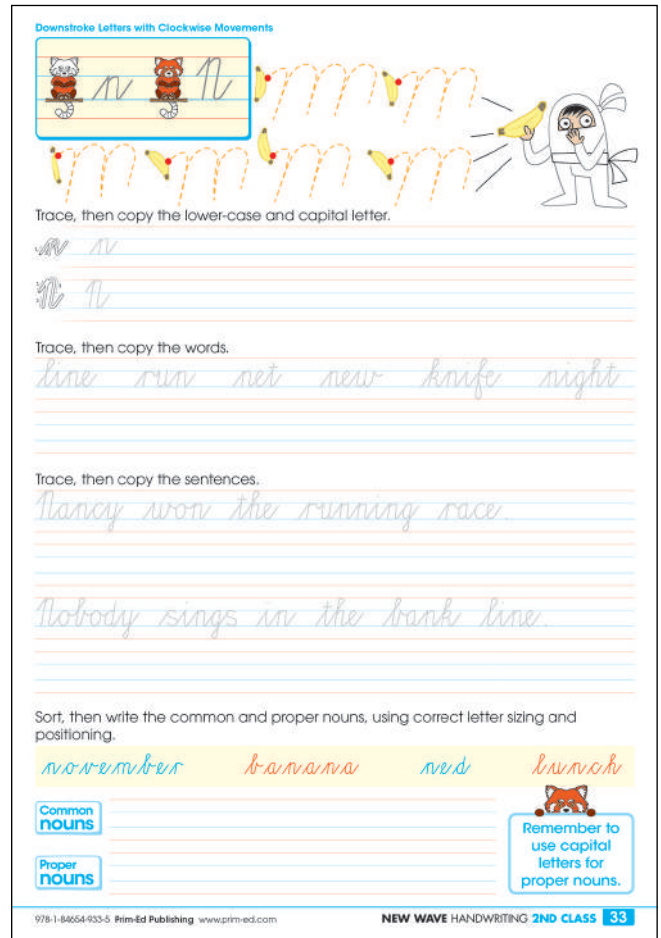 Downstroke Letters with Clockwise Movements
n N
Trace, then copy the lower-case and capital letter.
n n
N N
Trace, then copy the words.
line run net new knife night
Trace, then copy the sentences.
Nancy won the running race.
Nobody sings in the bank line.
Sort, then write the common and proper nouns, using correct letter sizing and
positioning.
november banana ned lunch
Common
nouns
Proper
nouns
Remember to
use capital
letters for
proper nouns.
978-1-84654-933-5 Prim-Ed Publishing www.prim-ed.com NEW WAVE HANDWRITING 2ND CLASS 33